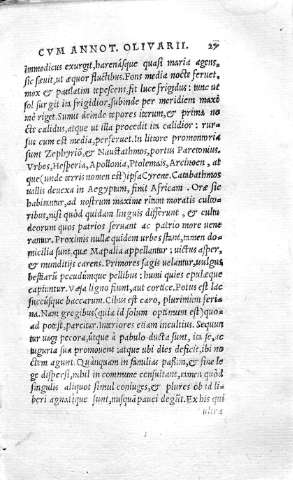 CVM ANNOT. OLIVARII. 27
immodicus exurgit, harenasque quasi maria agens,
sic sæuit, ut æquor fluctibus. Fons media nocte feruet,
mox & paulatim tepescens, fit luce frigidus: tunc ut
sol surgit ita frigidior, subinde per meridiem maxi
mè riget. Sumit deinde tepores iterum, & prima no
cte calidus, atque ut illa procedit ita calidior: rur-
sus cum est media, perferuet. In litore promontoria
sunt Zephyriō, & Naustathmos, portus Parætonius,
Vrbes, Hesperia, Apollonia, Ptolemais, Arsinoen, at
que (unde terris nomen est) ipsa Cyrene. Catabathmos
uallis deuexa in Aegyptum, finit Africam. Oræ sic
habitantur, ad nostrum maxime ritum moratis cultori
bus, nisi quòd quidam linguis differunt, & cultu
deorum quos patrios seruant ac patrio more uene
rantur. Proximis nullæ quidem urbes stant, tamen do
micilia sunt, quæ Mapalia appellantur: uictus asper,
& munditijs carens. Primores sagis uelantur, uulgus
bestiarū pecudumque pellibus: humi quies epulæque
capiuntur. Vasa ligno fiunt, aut cortice. Potus est lac
succusque baccarum. Cibus est caro, plurimum feri
na. Nam gregibus (quia id solum optimum est) quo
ad potest, parcitur. Interiores etiam incultius. Sequun
tur uagi pecora, utque à pabulo ducta sunt, ita se, ac
tuguria sua promouent: atque ubi dies deficit, ibi no
ctem agunt. Quanquam in familias passim, & sine le
ge dispersi, nihil in commune consultant, tamen quòd
singulis aliquot simul coniuges, & plures ob id li
beri agnatique sunt, nusquā pauci degūt. Ex his qui
ultra